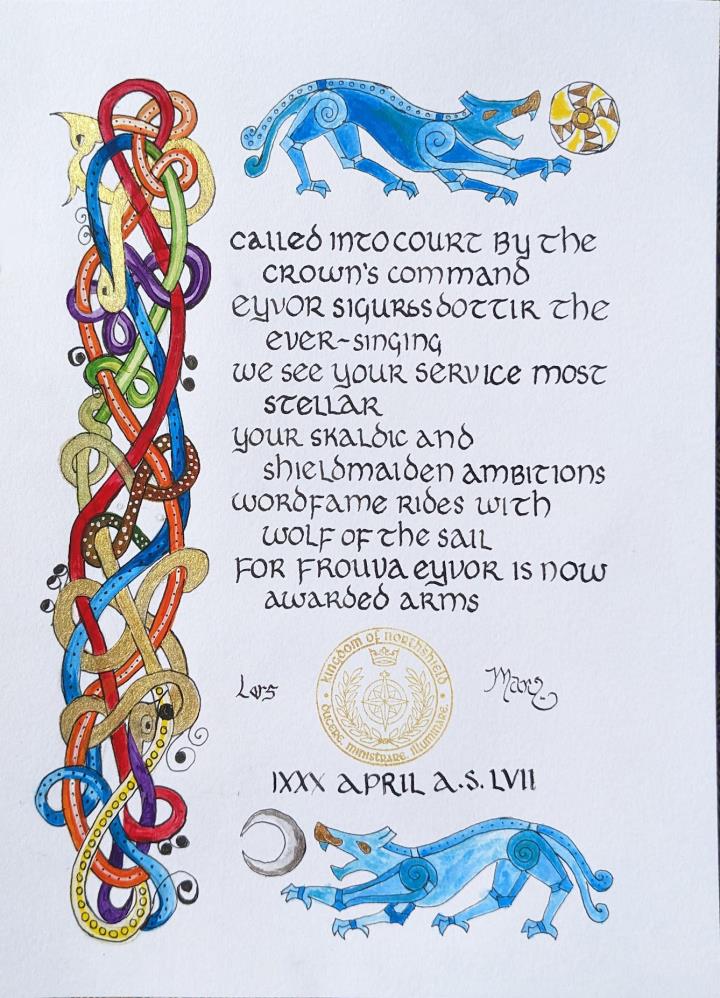 Called into court by the
crown's command
Eyvor Sigurðsdottir the
ever~singing
we see your service most
stellar
your skaldic and
shieldmaiden ambitions
wordfame rides with
wolf of the sail
for Frouva Eyvor is now
awarded arms
Kingdom of Northshield
Ducere, Ministrare, Illuminare.
IXXX April A.S. LVII